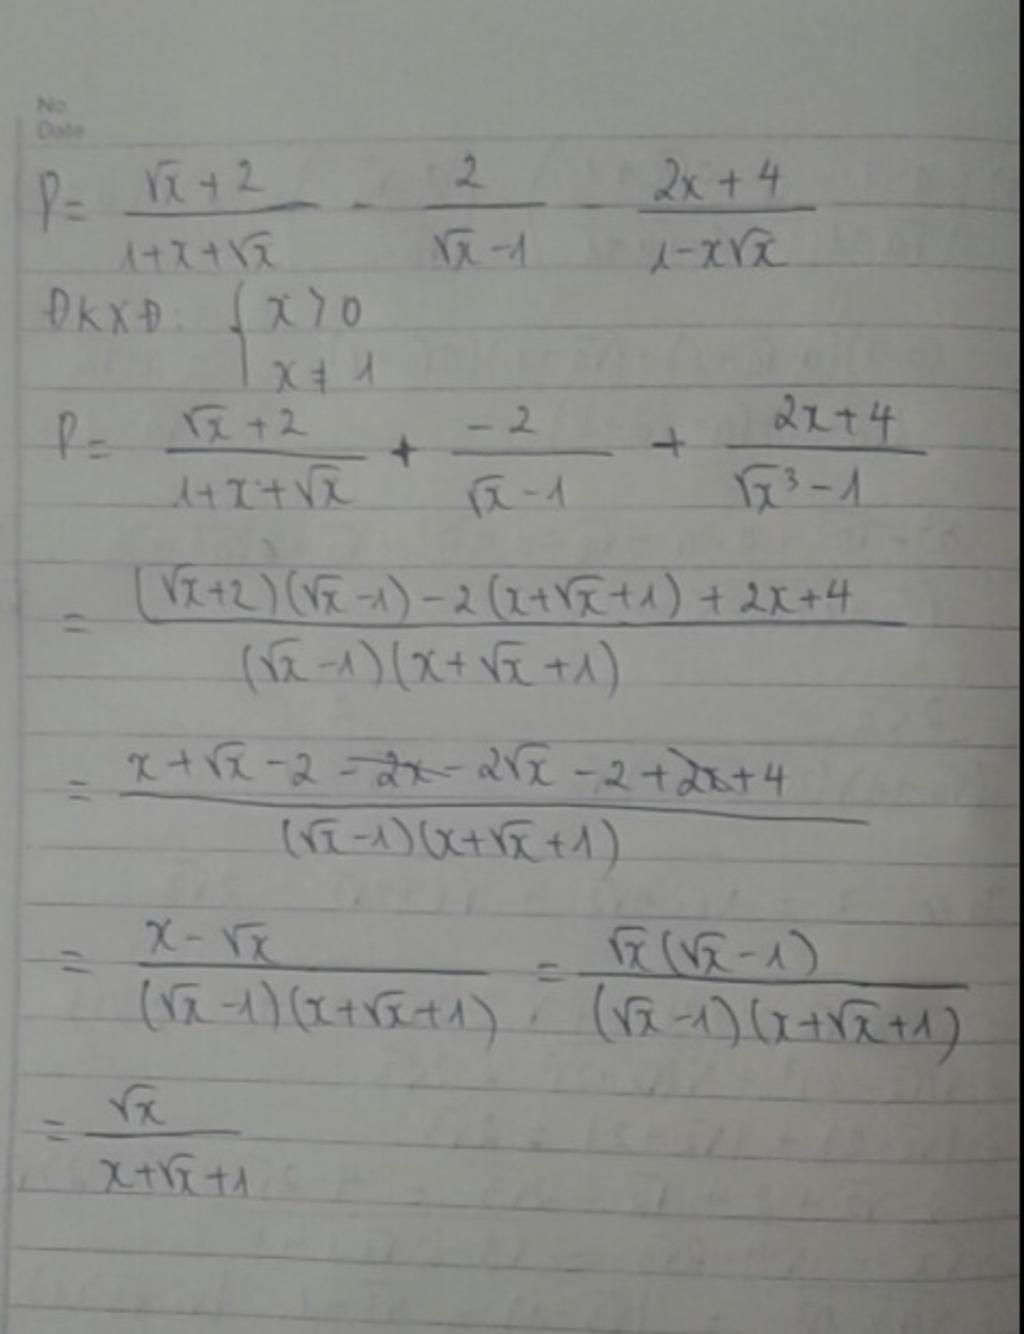 No
Date
P = (√x + 2)/(1+x+√x) - 2/(√x -1) - (2x + 4)/(1-x√x)
ĐKXĐ: { x > 0
x ≠ 1
P = (√x + 2)/(1+x+√x) + (-2)/(√x -1) + (2x+4)/(√x³ - 1)
= ((√x+2)(√x -1) - 2(x+√x+1) + 2x+4)/((√x -1)(x+√x+1))
= (x+√x - 2 - 2x - 2√x - 2 + 2x + 4)/((√x -1)(x+√x+1))
= (x - √x)/((√x -1)(x+√x+1)) = (√x(√x -1))/((√x -1)(x+√x+1))
= √x/(x+√x+1)